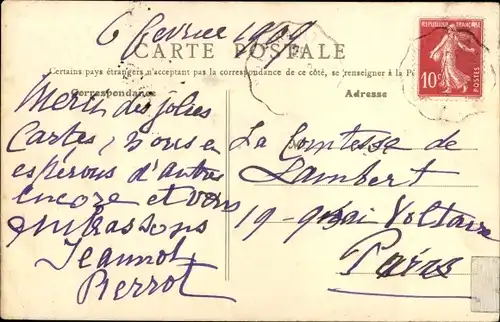 6 fevrier 1909
CARTE POSTALE
Certains pays étrangers n'acceptant pas la correspondance de ce côté, se renseigner à la
Correspondance
Adresse
REPUBLIQUE FRANÇAISE
10c
POSTES
Merci des jolies
Cartes, nous en
espérons d'autres
encore et vous
embrassons
Jeannot
Pierrot
La Comtesse de
Lambert
19 - quai Voltaire
Paris